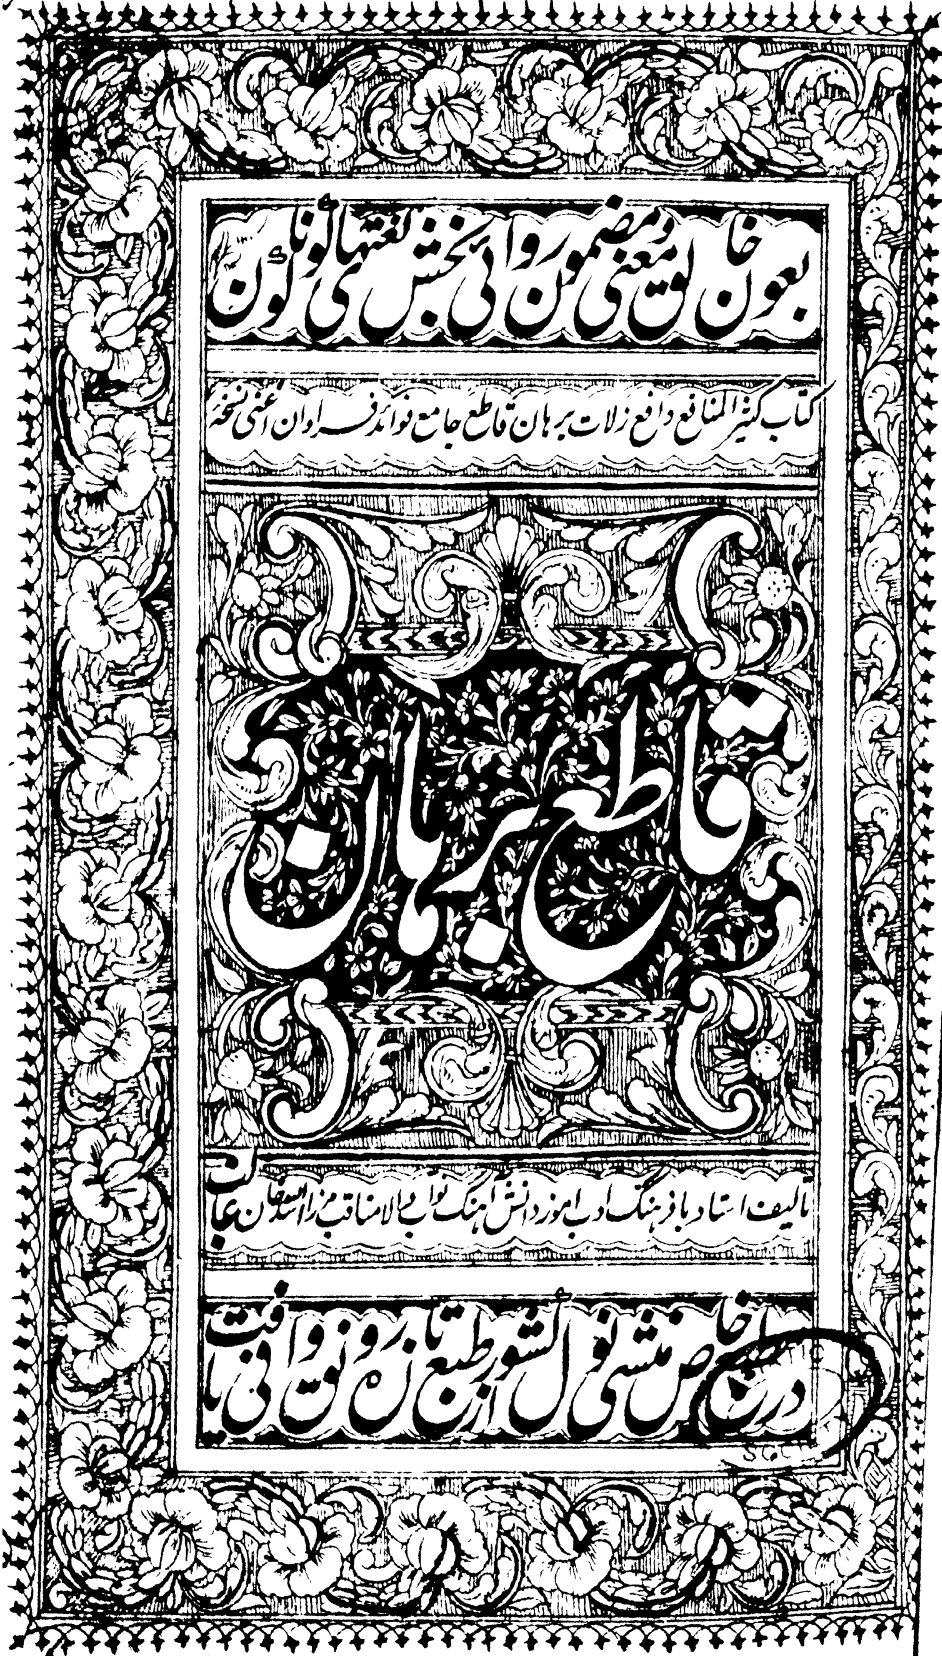 بعون خالق معنی و مضمون روائی بخش لغتهای گوناگون
کتاب کثیر المنافع دافع زلات برهان قاطع جامع فوائد فراوان اعنی نسخهٔ
قاطع برهان
تالیف استاد با فرهنگ ادب آموز دانش آهنگ نواب والا مناقب مرزا اسد الله خان غالب
در مطبع خاص منشی نول کشور از طبع تازه رونق وافی یافت